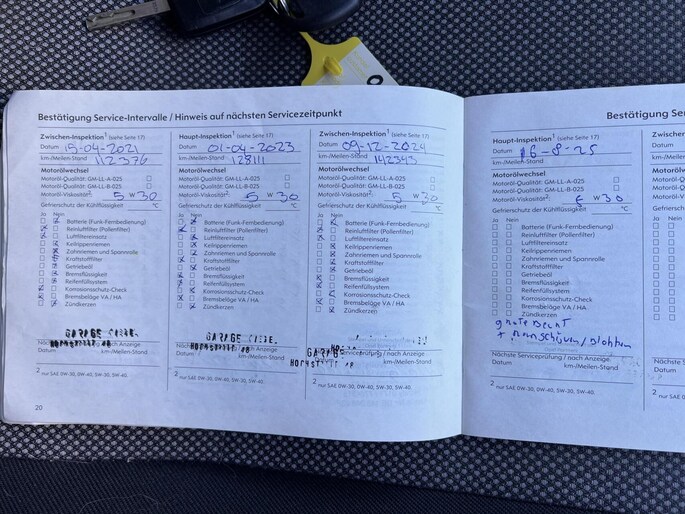 Bestätigung Service-Intervalle / Hinweis auf nächsten Servicezeitpunkt
Zwischen-Inspektion¹ (siehe Seite 17)
Datum 15-04-2021
km-/Meilen-Stand 112376
Motorölwechsel
Motoröl-Qualität: GM-LL-A-025
Motoröl-Qualität: GM-LL-B-025
Motoröl-Viskosität²: 5 W 30
Gefrierschutz der Kühlflüssigkeit °C
Ja Nein
Batterie (Funk-Fernbedienung)
Reinluftfilter (Pollenfilter)
Luftfiltereinsatz
Keilrippenriemen
Zahnriemen und Spannrolle
Kraftstofffilter
Getriebeöl
Bremsflüssigkeit
Reifenfüllsystem
Korrosionsschutz-Check
Bremsbeläge VA / HA
Zündkerzen
GARAGE
Nächste Serviceprüfung / nach Anzeige
Datum km-/Meilen-Stand
² nur SAE 0W-30, 0W-40, 5W-30, 5W-40.
20
Haupt-Inspektion¹ (siehe Seite 17)
Datum 01-04-2023
km-/Meilen-Stand 128111
Motorölwechsel
Motoröl-Qualität: GM-LL-A-025
Motoröl-Qualität: GM-LL-B-025
Motoröl-Viskosität²: 5 W 30
Gefrierschutz der Kühlflüssigkeit °C
Ja Nein
Batterie (Funk-Fernbedienung)
Reinluftfilter (Pollenfilter)
Luftfiltereinsatz
Keilrippenriemen
Zahnriemen und Spannrolle
Kraftstofffilter
Getriebeöl
Bremsflüssigkeit
Reifenfüllsystem
Korrosionsschutz-Check
Bremsbeläge VA / HA
Zündkerzen
GARAGE
nach Anzeige
km-/Meilen-Stand
² nur SAE 0W-30, 0W-40, 5W-30, 5W-40.
Zwischen-Inspektion¹ (siehe Seite 17)
Datum 09-12-2024
km-/Meilen-Stand 142343
Motorölwechsel
Motoröl-Qualität: GM-LL-A-025
Motoröl-Qualität: GM-LL-B-025
Motoröl-Viskosität²: 5 W 30
Gefrierschutz der Kühlflüssigkeit °C
Ja Nein
Batterie (Funk-Fernbedienung)
Reinluftfilter (Pollenfilter)
Luftfiltereinsatz
Keilrippenriemen
Zahnriemen und Spannrolle
Kraftstofffilter
Getriebeöl
Bremsflüssigkeit
Reifenfüllsystem
Korrosionsschutz-Check
Bremsbeläge VA / HA
Zündkerzen
GARAGE
Serviceprüfung / nach Anzeige
km-/Meilen-Stand
² nur SAE 0W-30, 0W-40, 5W-30, 5W-40.
Bestätigung Ser
Haupt-Inspektion¹ (siehe Seite 17)
Datum 16-8-25
km-/Meilen-Stand
Motorölwechsel
Motoröl-Qualität: GM-LL-A-025
Motoröl-Qualität: GM-LL-B-025
Motoröl-Viskosität²: W 30
Gefrierschutz der Kühlflüssigkeit °C
Ja Nein
Batterie (Funk-Fernbedienung)
Reinluftfilter (Pollenfilter)
Luftfiltereinsatz
Keilrippenriemen
Zahnriemen und Spannrolle
Kraftstofffilter
Getriebeöl
Bremsflüssigkeit
Reifenfüllsystem
Korrosionsschutz-Check
Bremsbeläge VA / HA
Zündkerzen
Nächste Serviceprüfung / nach Anzeige
Datum km-/Meilen-Stand
² nur SAE 0W-30, 0W-40, 5W-30, 5W-40.
Zwischen-
Datum
km-/Meilen-S
Motorölwec
Motoröl-Quali
Motoröl-Quali
Motoröl-Visko
Gefrierschutz
Ja Nein
Nächste Se
Datum
² nur SAE 0